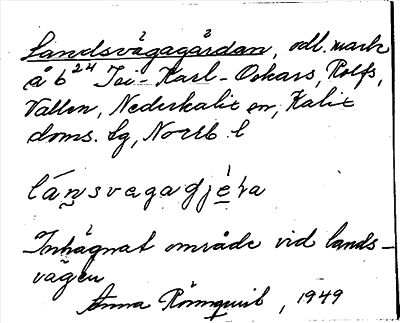 Landsvägagärdan, odl. mark
å b²⁴ Isi-Karl-Oskars, Rolfs,
Vallen, Nederkalix sn, Kalix
doms. lg, Norrb. l
länsvagagjèra
Inhägnat område vid lands-
vägen
Anna Rönnquist, 1949